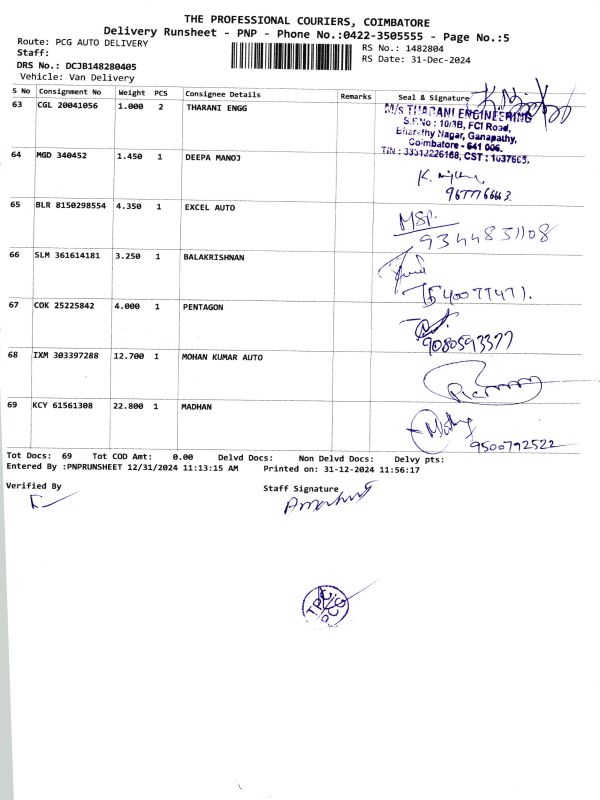 THE PROFESSIONAL COURIERS, COIMBATORE
Delivery Runsheet - PNP - Phone No.:0422-3505555 - Page No.:5
Route: PCG AUTO DELIVERY
RS No.: 1482804
Staff:
RS Date: 31-Dec-2024
DRS No.: DCJB148280405
Vehicle: Van Delivery
S No Consignment No Weight PCS Consignee Details Remarks Seal & Signature
63 CGL 20041056 1.000 2 THARANI ENGG
M/s THARANI ENGINEERING
S.F.No : 10/3B, FCI Road,
Bharathy Nagar, Ganapathy,
Coimbatore - 641 006.
64 MGD 340452 1.450 1 DEEPA MANOJ
65 BLR 8150298554 4.350 1 EXCEL AUTO
MSP.
9344831108
66 SLM 361614181 3.250 1 BALAKRISHNAN
67 COK 25225842 4.000 1 PENTAGON
9080593377
68 IXM 303397288 12.700 1 MOHAN KUMAR AUTO
69 KCY 61561308 22.800 1 MADHAN
9500792522
Tot Docs: 69 Tot COD Amt: 0.00 Delvd Docs: Non Delvd Docs: Delvy pts:
Entered By :PNPRUNSHEET 12/31/2024 11:13:15 AM Printed on: 31-12-2024 11:56:17
Verified By
Staff Signature
TPC
PCG